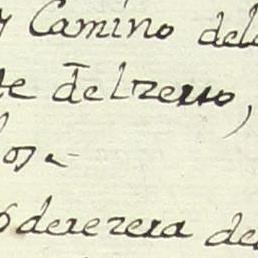 y Camino dela
te del zerro,
los
o derezera de